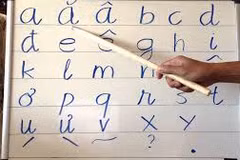 a ă â b c d
đ e ê g h i
k l m n
ơ p q r s t
u ư v x y
~ ? .